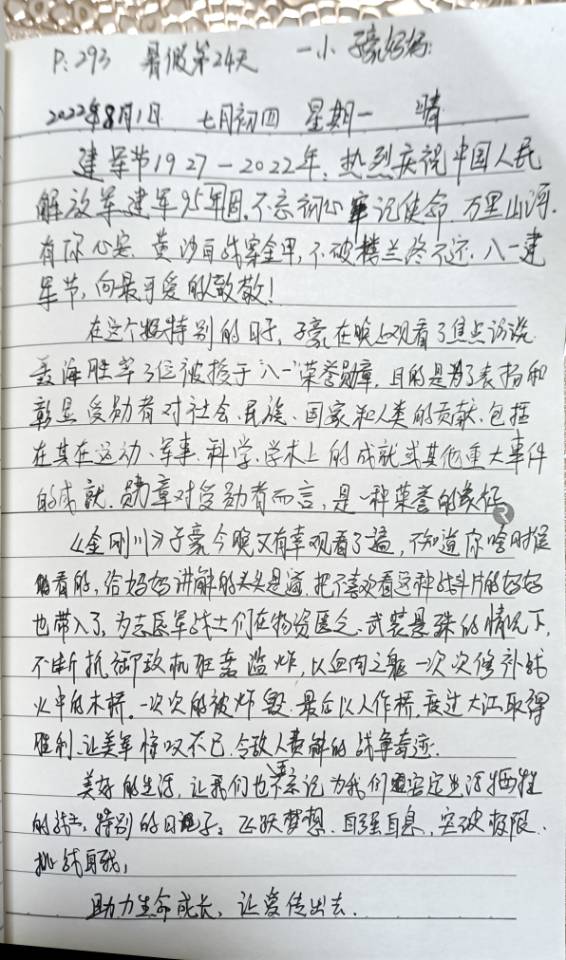 P:293 暑假第24天 一小 子豪妈妈
2022年8月1日 七月初四 星期一 晴
建军节1927—2022年,热烈庆祝中国人民
解放军建军95年周.不忘初心牢记使命.万里山河.
有你心安.黄沙百战穿金甲,不破楼兰终不还.八一建
军节,向最可爱的致敬!
在这个特别的日子,子豪在晚上观看了焦点访谈
海胜等3位被授于"八一"荣誉勋章,目的是为了表扬和
彰显受勋者对社会、民族、国家和人类的贡献.包括
在其在运动、军事.科学.学术上的成就或其他重大事件
的成就.勋章对受勋者而言,是一种荣誉的象征
《金刚川》子豪今晚又有幸观看了遍,不知道你啥时候
看的,给妈妈讲解的头头是道.把不喜欢看这种战斗片的妈妈
也带入了.为志愿军战士们在物资匮乏.武装悬殊的情况下,
不断抗御敌机狂轰滥炸,以血肉之躯一次次修补战
火中的木桥.一次次的被炸毁.最后以人作桥.度过大江取得
胜利.让美军惊叹不已.令敌人费解的战争奇迹.
美好的生活,让我们也不要忘记为我们安定生活牺牲
的战士,特别的日子.飞跃梦想.自强自息.突破极限.
挑战自我,
助力生命成长,让爱传出去.